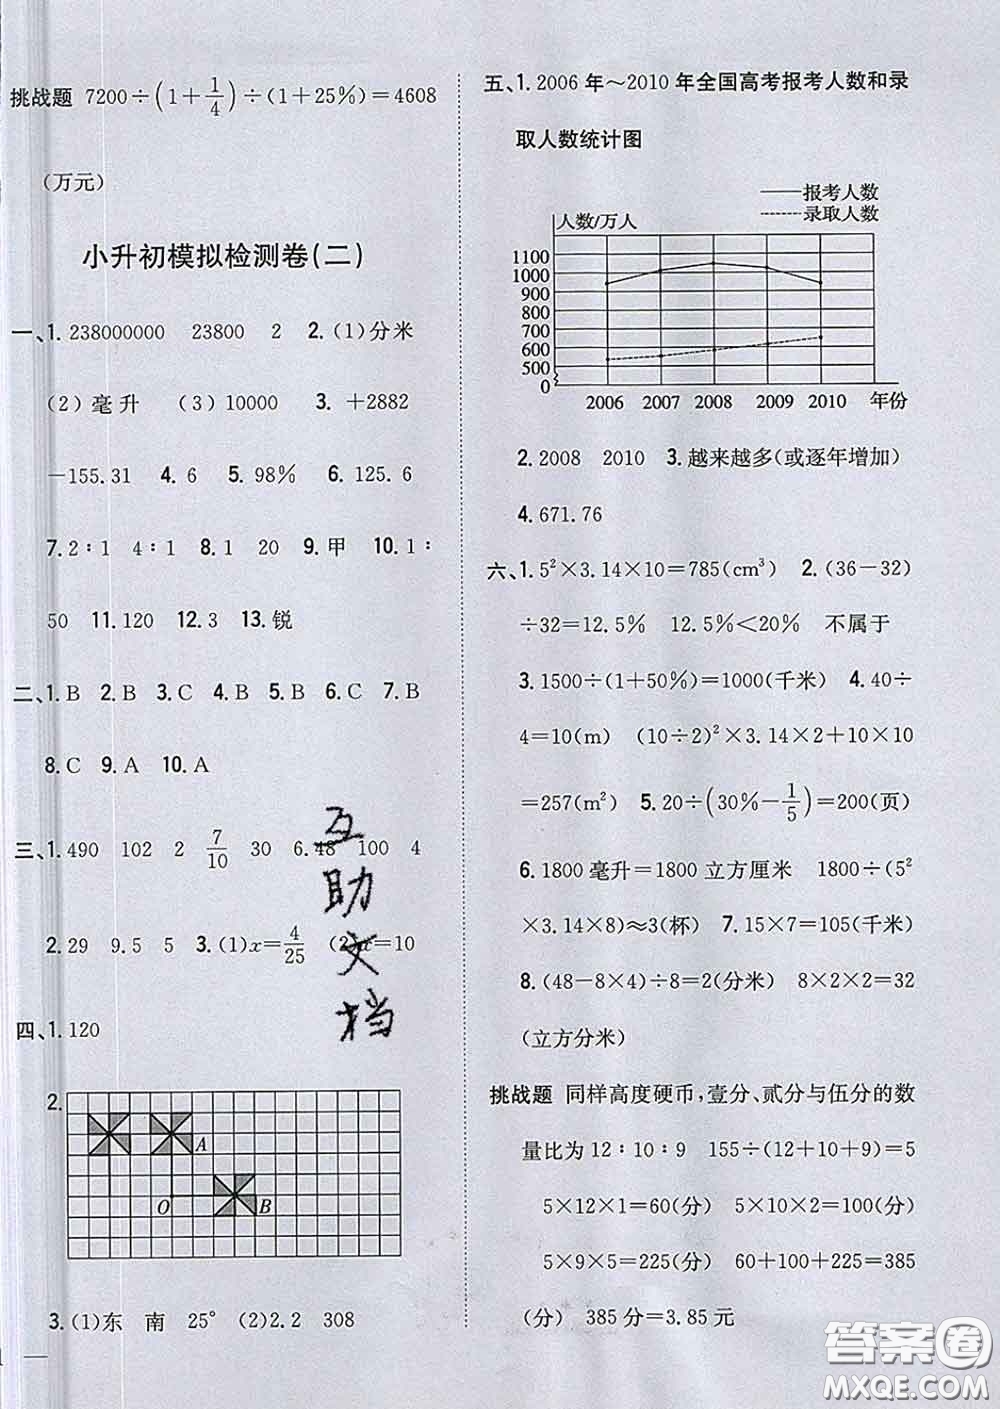 挑战题 7200÷(1+1/4)÷(1+25%)=4608
(万元)
小升初模拟检测卷(二)
一、1.238000000 23800 2 2.(1)分米
(2)毫升 (3)10000 3.+2882
-155.31 4.6 5.98% 6.125.6
7.2∶1 4∶1 8.1 20 9.甲 10.1∶
50 11.120 12.3 13.锐
二、1.B 2.B 3.C 4.B 5.B 6.C 7.B
8.C 9.A 10.A
三、1.490 102 2 7/10 30 6.48 100 4
2.29 9.5 5 3.(1)x=4/25 (2)x=10
互
助
文
档
四、1.120
2.
A
O
B
3.(1)东 南 25° (2)2.2 308
五、1.2006年～2010年全国高考报考人数和录
取人数统计图
报考人数
录取人数
人数/万人
1100
1000
900
800
700
600
500
0
2006 2007 2008 2009 2010 年份
2.2008 2010 3.越来越多(或逐年增加)
4.671.76
六、1.5²×3.14×10=785(cm³) 2.(36-32)
÷32=12.5% 12.5%<20% 不属于
3.1500÷(1+50%)=1000(千米) 4.40÷
4=10(m) (10÷2)²×3.14×2+10×10
=257(m²) 5.20÷(30%-1/5)=200(页)
6.1800毫升=1800立方厘米 1800÷(5²
×3.14×8)≈3(杯) 7.15×7=105(千米)
8.(48-8×4)÷8=2(分米) 8×2×2=32
(立方分米)
挑战题 同样高度硬币,壹分、贰分与伍分的数
量比为12∶10∶9 155÷(12+10+9)=5
5×12×1=60(分) 5×10×2=100(分)
5×9×5=225(分) 60+100+225=385
(分) 385分=3.85元
答案圈
MXQE.COM